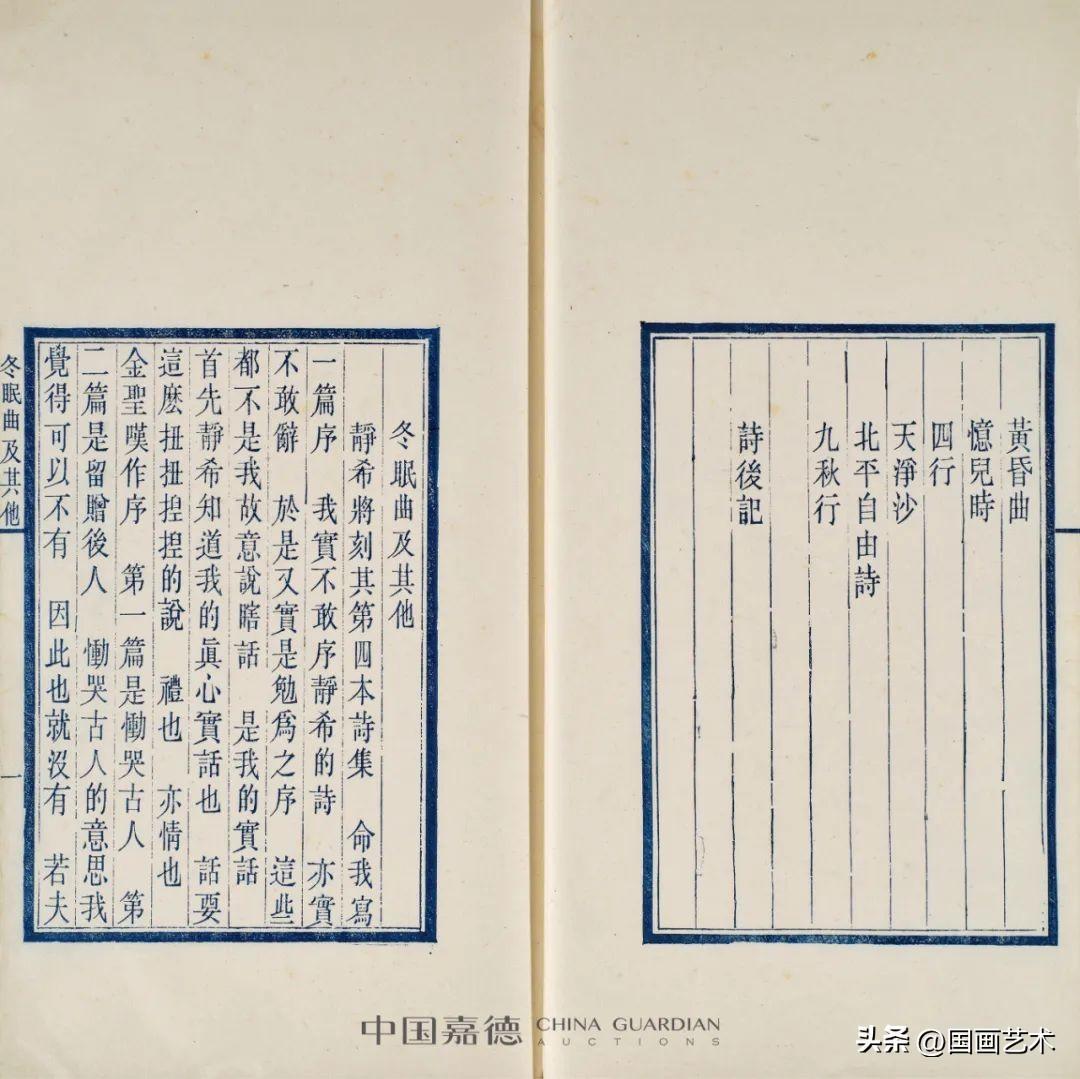 黃昏曲
憶兒時
四行
天淨沙
北平自由詩
九秋行
詩後記
冬眠曲及其他
靜希將刻其第四本詩集　命我寫
一篇序　我實不敢序靜希的詩　亦實
不敢辭　於是又實是勉爲之序　這些
都不是我故意說瞎話　是我的實話
首先靜希知道我的眞心實話也　話要
這麽扭扭捏捏的說　禮也　亦情也
金聖嘆作序　第一篇是慟哭古人　第
二篇是留贈後人　慟哭古人的意思我
覺得可以不有　因此也就沒有　若夫
冬眠曲及其他
一
中国嘉德 CHINA GUARDIAN
AUCTIONS
头条 @国画艺术